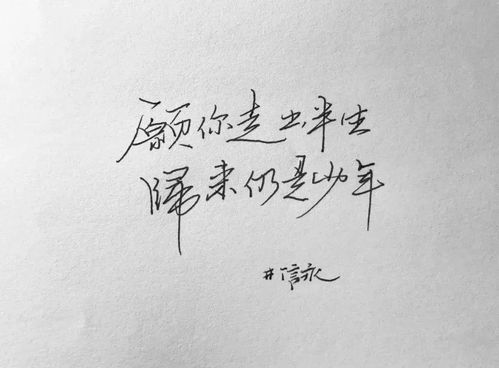 願你走出半生
歸来仍是少年
#信永